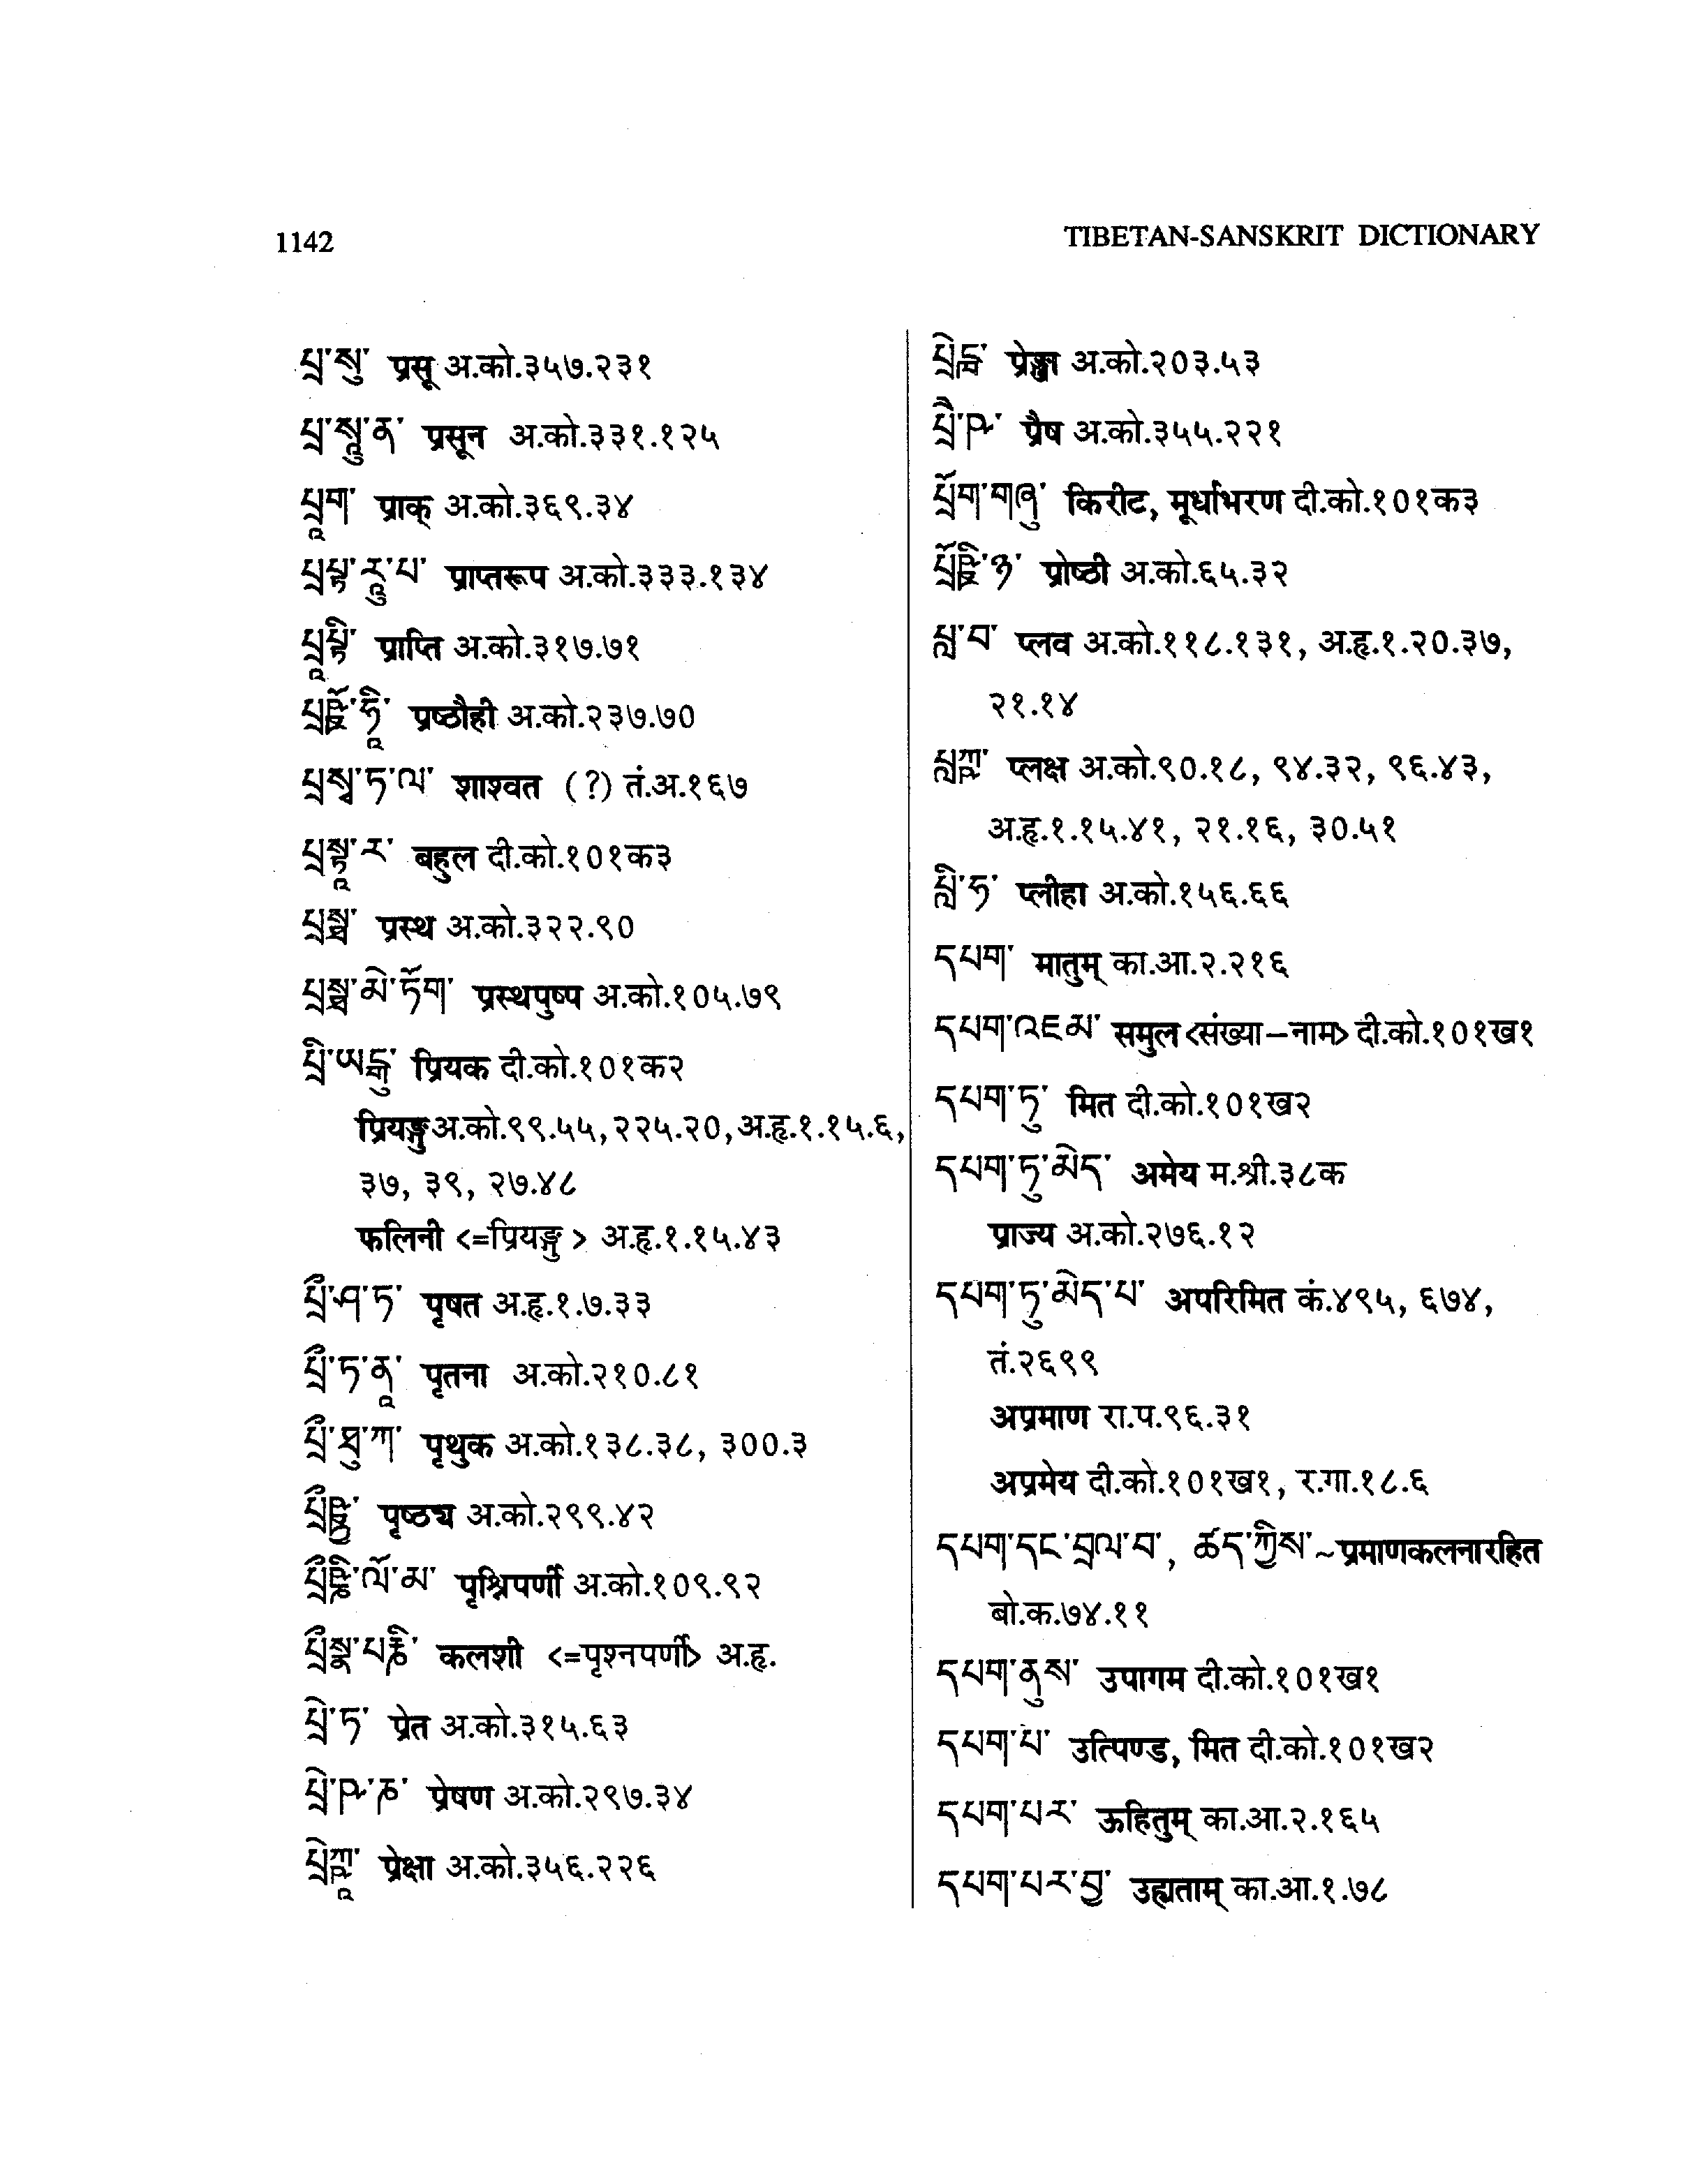 1142
TIBETAN-SANSKRIT DICTIONARY
པྲ་སུ་ प्रसू अ.को.३५७.२३१
པྲ་སཱུ་ན་ प्रसून अ.को.३३१.१२५
པྲཱག་ प्राक् अ.को.३६९.३४
པྲཔྟ་རཱུ་པ་ प्राप्तरूप अ.को.३३३.१३४
པྲཱཔྟི་ प्राप्ति अ.को.३१७.७१
པྲཥྛོ་ཧཱི་ प्रष्ठौही अ.को.२३७.७०
པྲསྭ་ཏ་ལ་ शाश्वत (?) तं.अ.१६७
པྲསྟཱ་ར་ बहुल दी.को.१०१क३
པྲསྠ་ प्रस्थ अ.को.३२२.९०
པྲསྠ་མེ་ཏོག་ प्रस्थपुष्प अ.को.१०५.७९
པྲི་ཡངྒུ་ प्रियक दी.को.१०१क२
प्रियङ्गु अ.को.९९.५५, २२५.२०, अ.हृ.१.१५.६,
३७, ३९, २७.४८
फलिनी <=प्रियङ्गु > अ.हृ.१.१५.४३
པྲྀ་ཤ་ཏ་ पृषत अ.हृ.१.७.३३
པྲྀ་ཏ་ནཱ་ पृतना अ.को.२१०.८१
པྲྀ་ཐུ་ཀ་ पृथुक अ.को.१३८.३८, ३००.३
पृष्ठ्य अ.को.२९९.४२
पृश्निपर्णी अ.को.१०९.९२
कलशी <=पृश्नपर्णी> अ.हृ.
པྲེ་ཏ་ प्रेत अ.को.३१५.६३
པྲེ་ཥ་ཎ་ प्रेषण अ.को.२९७.३४
པྲེཀྵཱ་ प्रेक्षा अ.को.३५६.२२६
པྲེངྑ་ प्रेङ्खा अ.को.२०३.५३
པྲཻ་ཥ་ प्रैष अ.को.३५५.२२१
པྲོག་གཞུ་ किरीट, मूर्धाभरण दी.को.१०१क३
प्रोष्ठी अ.को.६५.३२
པླ་བ་ प्लव अ.को.११८.१३१, अ.हृ.१.२०.३७,
२१.१४
པླཀྵ་ प्लक्ष अ.को.९०.१८, ९४.३२, ९६.४३,
अ.हृ.१.१५.४१, २१.१६, ३०.५१
པླི་ཧ་ प्लीहा अ.को.१५६.६६
དཔག་ मातुम् का.आ.२.२१६
དཔག་འཇམ་ समुल <संख्या-नाम> दी.को.१०१ख१
དཔག་ཏུ་ मित दी.को.१०१ख२
དཔག་ཏུ་མེད་ अमेय म.श्री.३८क
प्राज्य अ.को.२७६.१२
དཔག་ཏུ་མེད་པ་ अपरिमित कं.४९५, ६७४,
तं.२६९९
अप्रमाण रा.प.९६.३१
अप्रमेय दी.को.१०१ख१, र.गा.१८.६
དཔག་དང་བྲལ་བ་, ཚད་ཀྱིས་~प्रमाणकलनारहित
बो.क.७४.११
དཔག་ནུས་ उपागम दी.को.१०१ख१
དཔག་པ་ उत्पिण्ड, मित दी.को.१०१ख२
དཔག་པར་ ऊहितुम् का.आ.२.१६५
དཔག་པར་བྱ་ उह्यताम् का.आ.१.७८